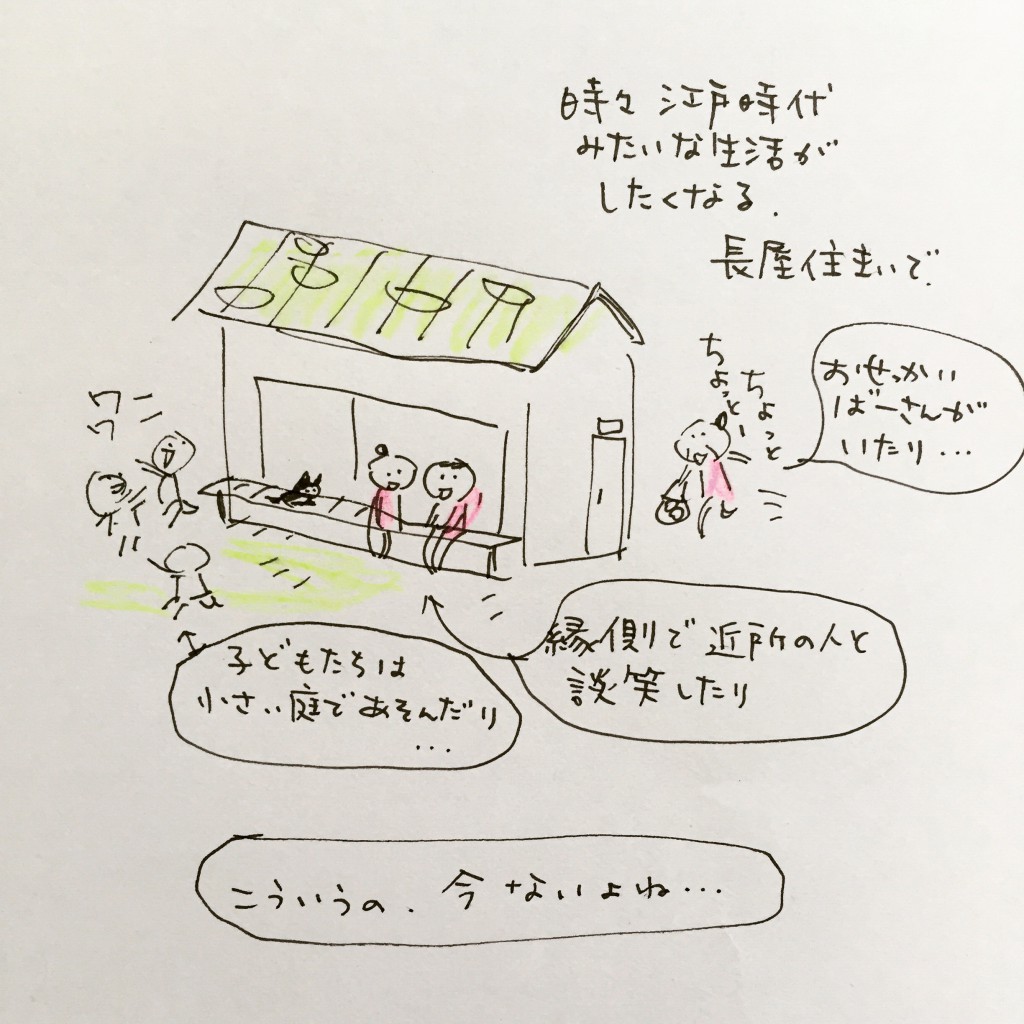 時々 江戸時代
みたいな生活が
したくなる.
長屋住まいで.
ちょっとー
ちょっと
おせっかい
ばーさんが
いたり...
ワー
ワ
縁側で近所の人と
談笑したり
子どもたちは
小さい庭であそんだり
...
こういうの. 今ないよね...